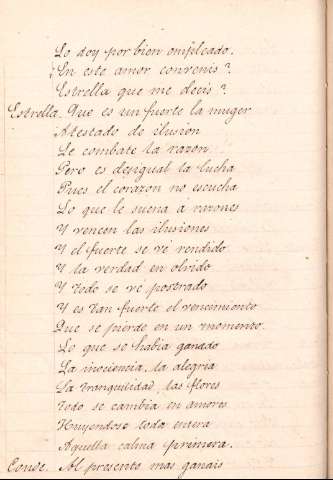 Lo doy por bien empleado.
¿En este amor convenis?
Estrella que me decis?
Estrella. Que es un fuerte la muger
Atestado de ilusion
Le combate la razon
Pero es desigual la lucha
Pues el corazon no escucha
Lo que le suena á razones
Y vencen las ilusiones
Y el fuerte se vé rendido
Y la verdad en olvido
Y todo se vé postrado
Y es tan fuerte el vencimiento
Que se pierde en un momento
Lo que se habia ganado
La inocencia, la alegria
La tranquilidad, las flores
Todo se cambia en amores
Huyendose toda entera
Aquella calma primera.
Conde. Al presente mas ganais